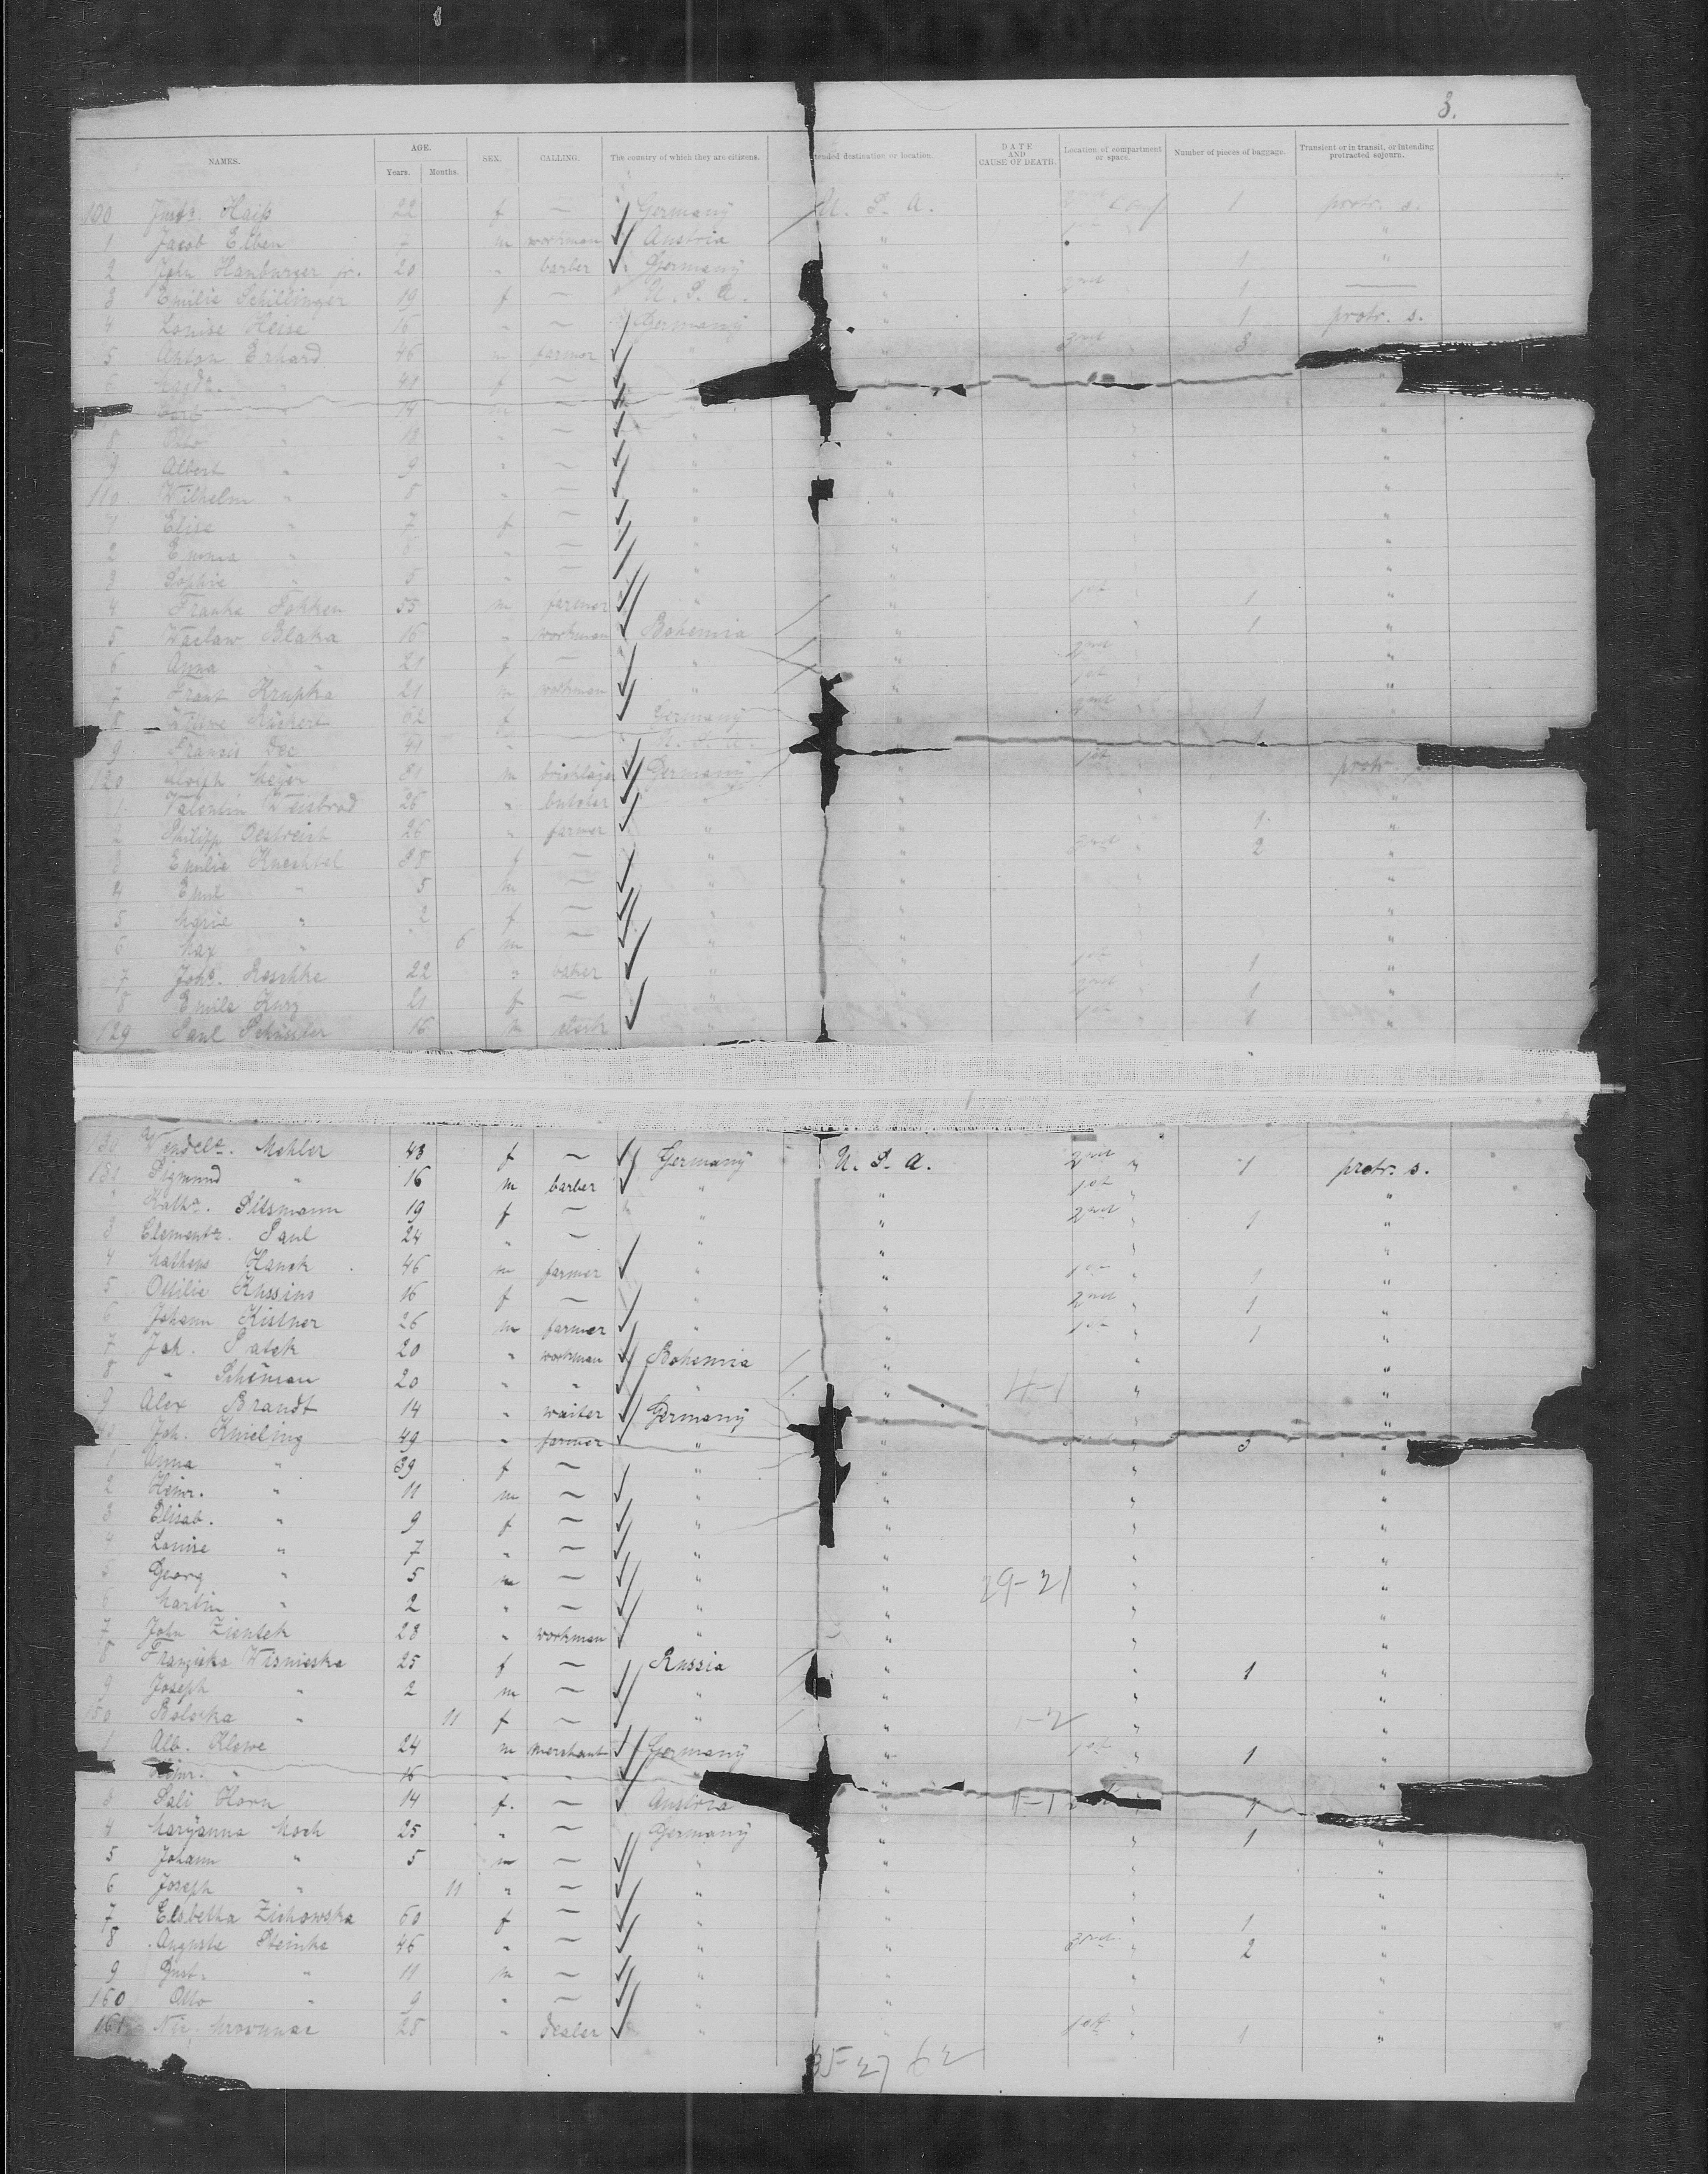 3.
NAMES. AGE. Years. Months. SEX. CALLING. The country of which they are citizens. tended destination or location. DATE AND CAUSE OF DEATH. Location of compartment or space. Number of pieces of baggage. Transient or in transit, or intending protracted sojourn.
100 Haiss 22 f — Germany U. S. A. 2nd 1 protr. s.
1 Jacob Elben 7 m workman Austria " 1st "
2 John Hamburger jr. 20 " barber Germany " 1 "
3 Emilie Schillinger 19 f — U. S. A. " 2nd 1 —
4 Louise Heise 16 " — Germany " 1 protr. s.
5 Anton Erhard 46 m farmer " 3
6 Magda. " 41 f — "
14 m — " "
8 Otto " 18 " — " " "
9 Albert " 9 " — " " "
110 Wilhelm " 8 " — " " "
1 Elise " 7 f — " " "
2 Emma " 6 " — " " "
3 Sophie " 5 " — " " "
4 Franke Fokken 55 m farmer " " 1st " 1 "
5 Waclaw Blaka 16 " workman Bohemia " " 1 "
6 Anna " 21 f — " " 2nd "
7 Krupka 21 m workman " " 1st "
8 62 f Germany " 2nd 1
9 Francis Dee 41 " U. S. A. 1
120 Adolph Meyer 31 m Germany " 1st protr.
1 Valentin Weisbrod 26 " butcher " " "
2 Philipp Oestreich 26 " farmer " " " 1 "
3 Emilie Knechtel 38 f — " " " 2 "
4 Emil " 5 m — " " "
5 Marie " 2 f — " " "
6 Max " 6 m — " " "
7 Johs. Reschke 22 " baker " " 1st 1 "
8 Emile Kurz 21 f — " " 2nd 1 "
129 Paul Schuster 16 m clerk " " 1st 1 "
30 Mohler 43 f — Germany U. S. A. 2nd " 1 protr. s.
131 Sigmund " 16 m barber " " 1st " "
Katha. 19 f — " " 2nd " 1 "
3 Paul 24 " — " " " "
4 Mathews Hauck 46 m farmer " " 1st " 1 "
5 Ottilie Kussius 16 f — " " 2nd " 1 "
6 Johann Kistner 26 m farmer " " 1st " 1 "
7 Joh. Patek 20 " workman Bohemia " " "
8 " Schiman 20 " " " " 4-1 " "
9 Alex Brandt 14 " waiter Germany " " "
40 Joh. Kmeling 49 " farmer " " " 3 "
1 Anna " 39 f — " " " "
2 Heinr. " 11 m — " " " "
3 Elisab. " 9 f — " " " "
4 Louise " 7 " — " " " "
5 Georg " 5 m — " " 29-21 " "
6 Martin " 2 " — " " " "
7 John Zientek 28 " workman " " " "
8 Franziska Wisnieska 25 f — Russia " " 1 "
9 Joseph " 2 m — " " " "
150 " 11 f — " " 1-2 " "
1 Alb. Klewe 24 m merchant Germany " 1st " 1 "
Heinr. " 16 " " " " "
3 Sali Horn 14 f. — Austria " 1-1 1
4 Maryanna Moch 25 " — Germany " " 1 "
5 Johann " 5 m — " " " "
6 Joseph " 11 " — " " " "
7 Elsbetha Zichowska 60 f — " " " 1 "
8 Auguste Steinke 46 " — " " 3rd " 2 "
9 Gust. " 11 m — " " " "
160 Otto " 9 " — " " " "
161 28 " dealer " " 1st " 1 "
35-27 62